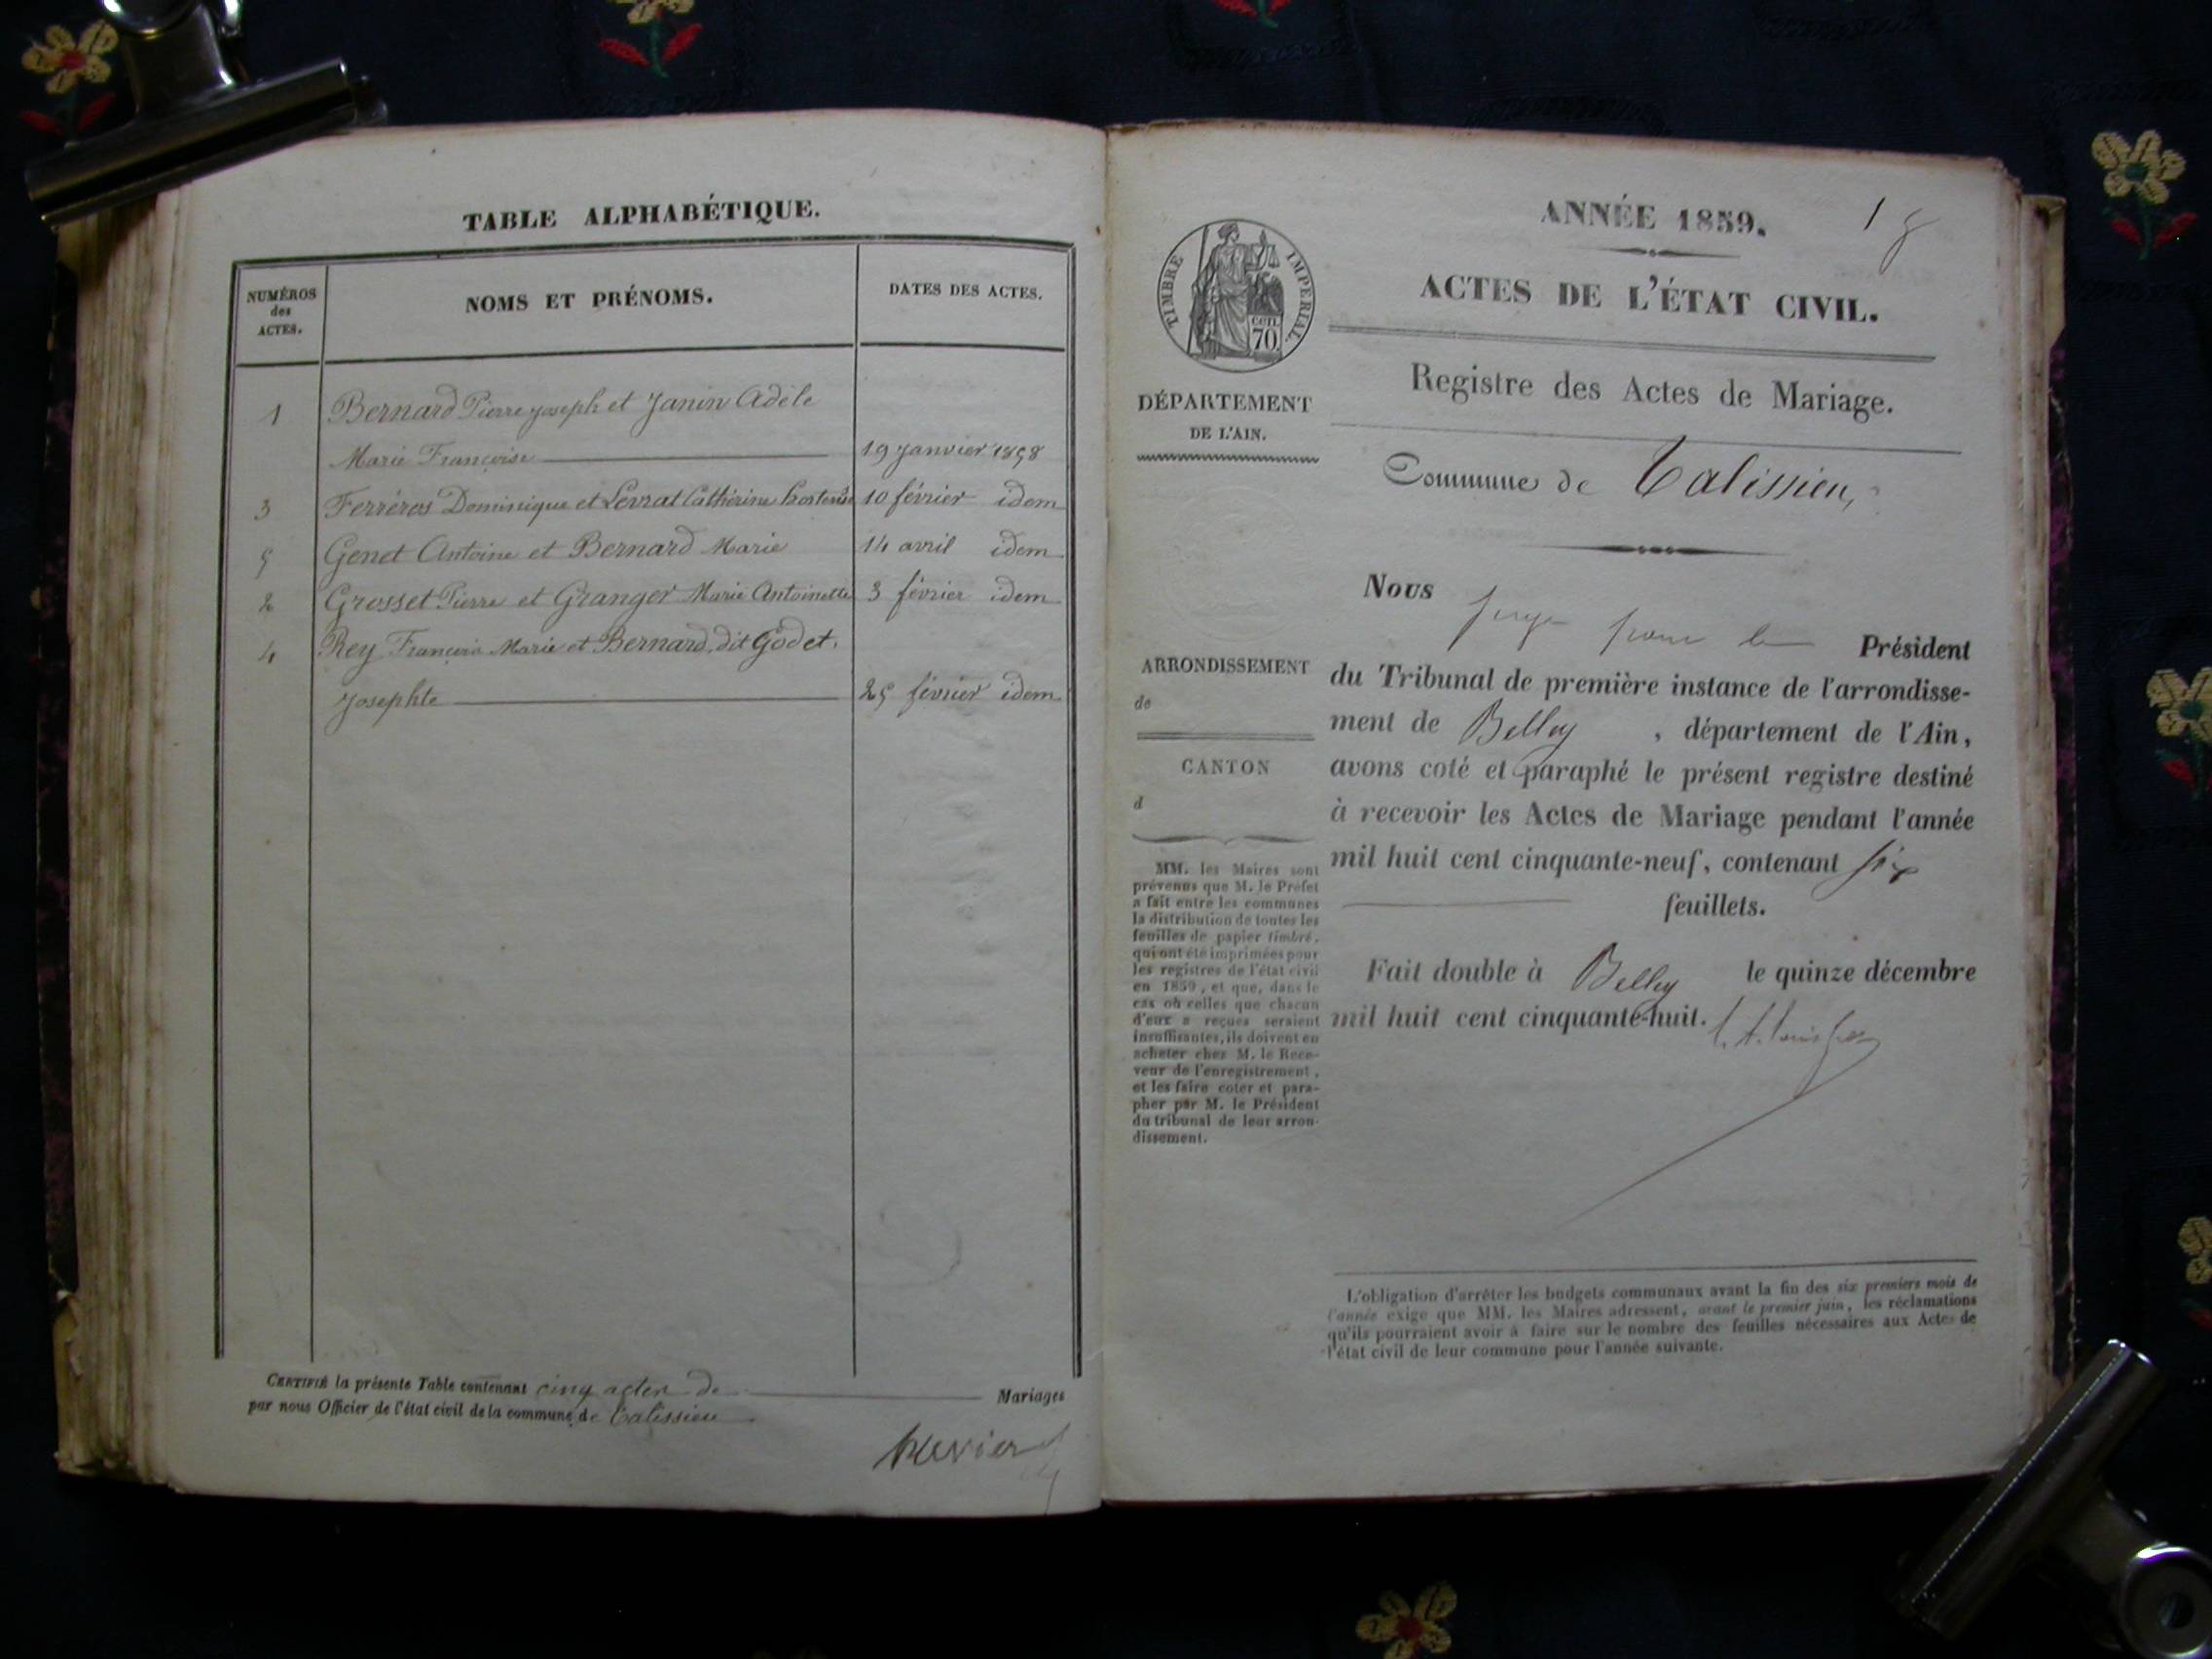 TABLE ALPHABÉTIQUE.
NUMÉROS
des
ACTES.
NOMS ET PRÉNOMS.
DATES DES ACTES.
1 Bernard Pierre Joseph et Janin Adèle
Marie Françoise 19 Janvier 1858
3 Ferréros Dominique et Levrat Cathérine hortense 10 février idem
5 Genet Antoine et Bernard Marie 14 avril idem
2 Grosset Pierre et Granger Marie Antoinette 3 février idem
4 Rey François Marie et Bernard, dit Godet.
Josephte 25 février idem
CERTIFIÉ la présente Table contenant cinq actes de Mariages
par nous Officier de l'état civil de la commune de Talissieu
ANNÉE 1859. 1
ACTES DE L'ÉTAT CIVIL.
TIMBRE IMPÉRIAL
CENT.
70.
DÉPARTEMENT
DE L'AIN.
Registre des Actes de Mariage.
Commune de Talissieu,
Nous juge pour le Président
du Tribunal de première instance de l'arrondisse-
ment de Belley , département de l'Ain,
avons coté et paraphé le présent registre destiné
à recevoir les Actes de Mariage pendant l'année
mil huit cent cinquante-neuf, contenant six
feuillets.
Fait double à Belley le quinze décembre
mil huit cent cinquante-huit.
ARRONDISSEMENT
de
CANTON
d
MM. les Maires sont
prévenus que M. le Préfet
a fait entre les communes
la distribution de toutes les
feuilles de papier timbré,
qui ont été imprimées pour
les registres de l'état civil
en 1859, et que, dans le
cas où celles que chacun
d'eux a reçues seraient
insuffisantes, ils doivent en
acheter chez M. le Rece-
veur de l'enregistrement,
et les faire coter et para-
pher par M. le Président
du tribunal de leur arron-
dissement.
L'obligation d'arrêter les budgets communaux avant la fin des six premiers mois de
l'année exige que MM. les Maires adressent, avant le premier juin, les réclamations
qu'ils pourraient avoir à faire sur le nombre des feuilles nécessaires aux Actes de
l'état civil de leur commune pour l'année suivante.